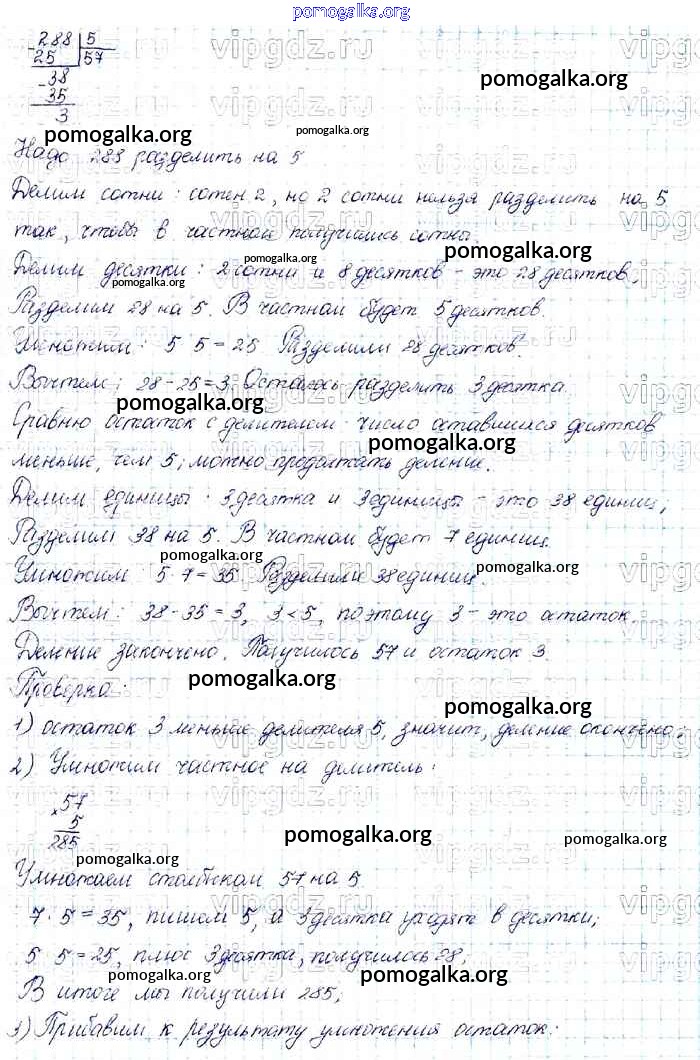 pomogalka.org
288 | 5
25 57
- 38
35
3
pomogalka.org
pomogalka.org
pomogalka.org
Надо 288 разделить на 5
Делим сотни: сотен 2, но 2 сотни нельзя разделить на 5
так, чтобы в частном получились сотни.
pomogalka.org
pomogalka.org
Делим десятки: 2 сотни и 8 десятков - это 28 десятков,
pomogalka.org
Разделим 28 на 5. В частном будет 5 десятков.
Умножим: 5 5 = 25 Разделили 28 десятков.
Вычтем: 28 - 25 = 3, Осталось разделить 3 десятка.
pomogalka.org
Сравню остаток с делителем число оставшихся десятков
pomogalka.org
меньше, чем 5; можно продолжать деление.
Делим единицы 3 десятка и 3 единицы - это 38 единиц;
Разделим 38 на 5. В частном будет 7 единиц.
pomogalka.org
pomogalka.org
Умножим 5·7 = 35 Разделили 38 единиц.
Вычтем: 38 - 35 = 3, 3 < 5, поэтому 3 - это остаток.
Деление закончено. Получилось 57 и остаток 3
Проверка
pomogalka.org
pomogalka.org
1) остаток 3 меньше делителя 5, значит, деление окончено;
2) Умножим частное на делитель:
× 57
5
285
pomogalka.org
pomogalka.org
pomogalka.org
Умножаем столбиком 57 на 5
7 · 5 = 35, пишем 5, а 3 десятка уходят в десятки;
5 5 = 25, плюс 3 десятка, получилось 28,
pomogalka.org
pomogalka.org
В итоге мы получили 285;
3) Прибавим к результату умножения остаток:
vipgdz.ru